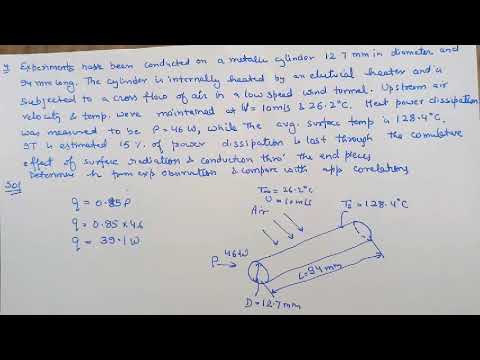 Experiments have been conducted on a metallic cylinder 12.7 mm in diameter and
94 mm long. The cylinder is internally heated by an electrical heater and is
subjected to a cross flow of air in a low speed wind tunnel. Upstream air
velocity & temp. were maintained at V = 10m/s & 26.2°C. Heat power dissipation
was measured to be P = 46 W, while the avg. surface temp is 128.4°C.
IT is estimated 15 %. of power dissipation is lost through the cumulative
effect of surface radiation & conduction thro' the end pieces
Determine h from exp. observation & compare with app correlations
Sol
q = 0.85P
q = 0.85 x 46
q = 39.1 W
T∞ = 26.2°C
U = 10m/s
Air
Ts = 128.4°C
P 46W
L = 94 mm
D = 12.7 mm